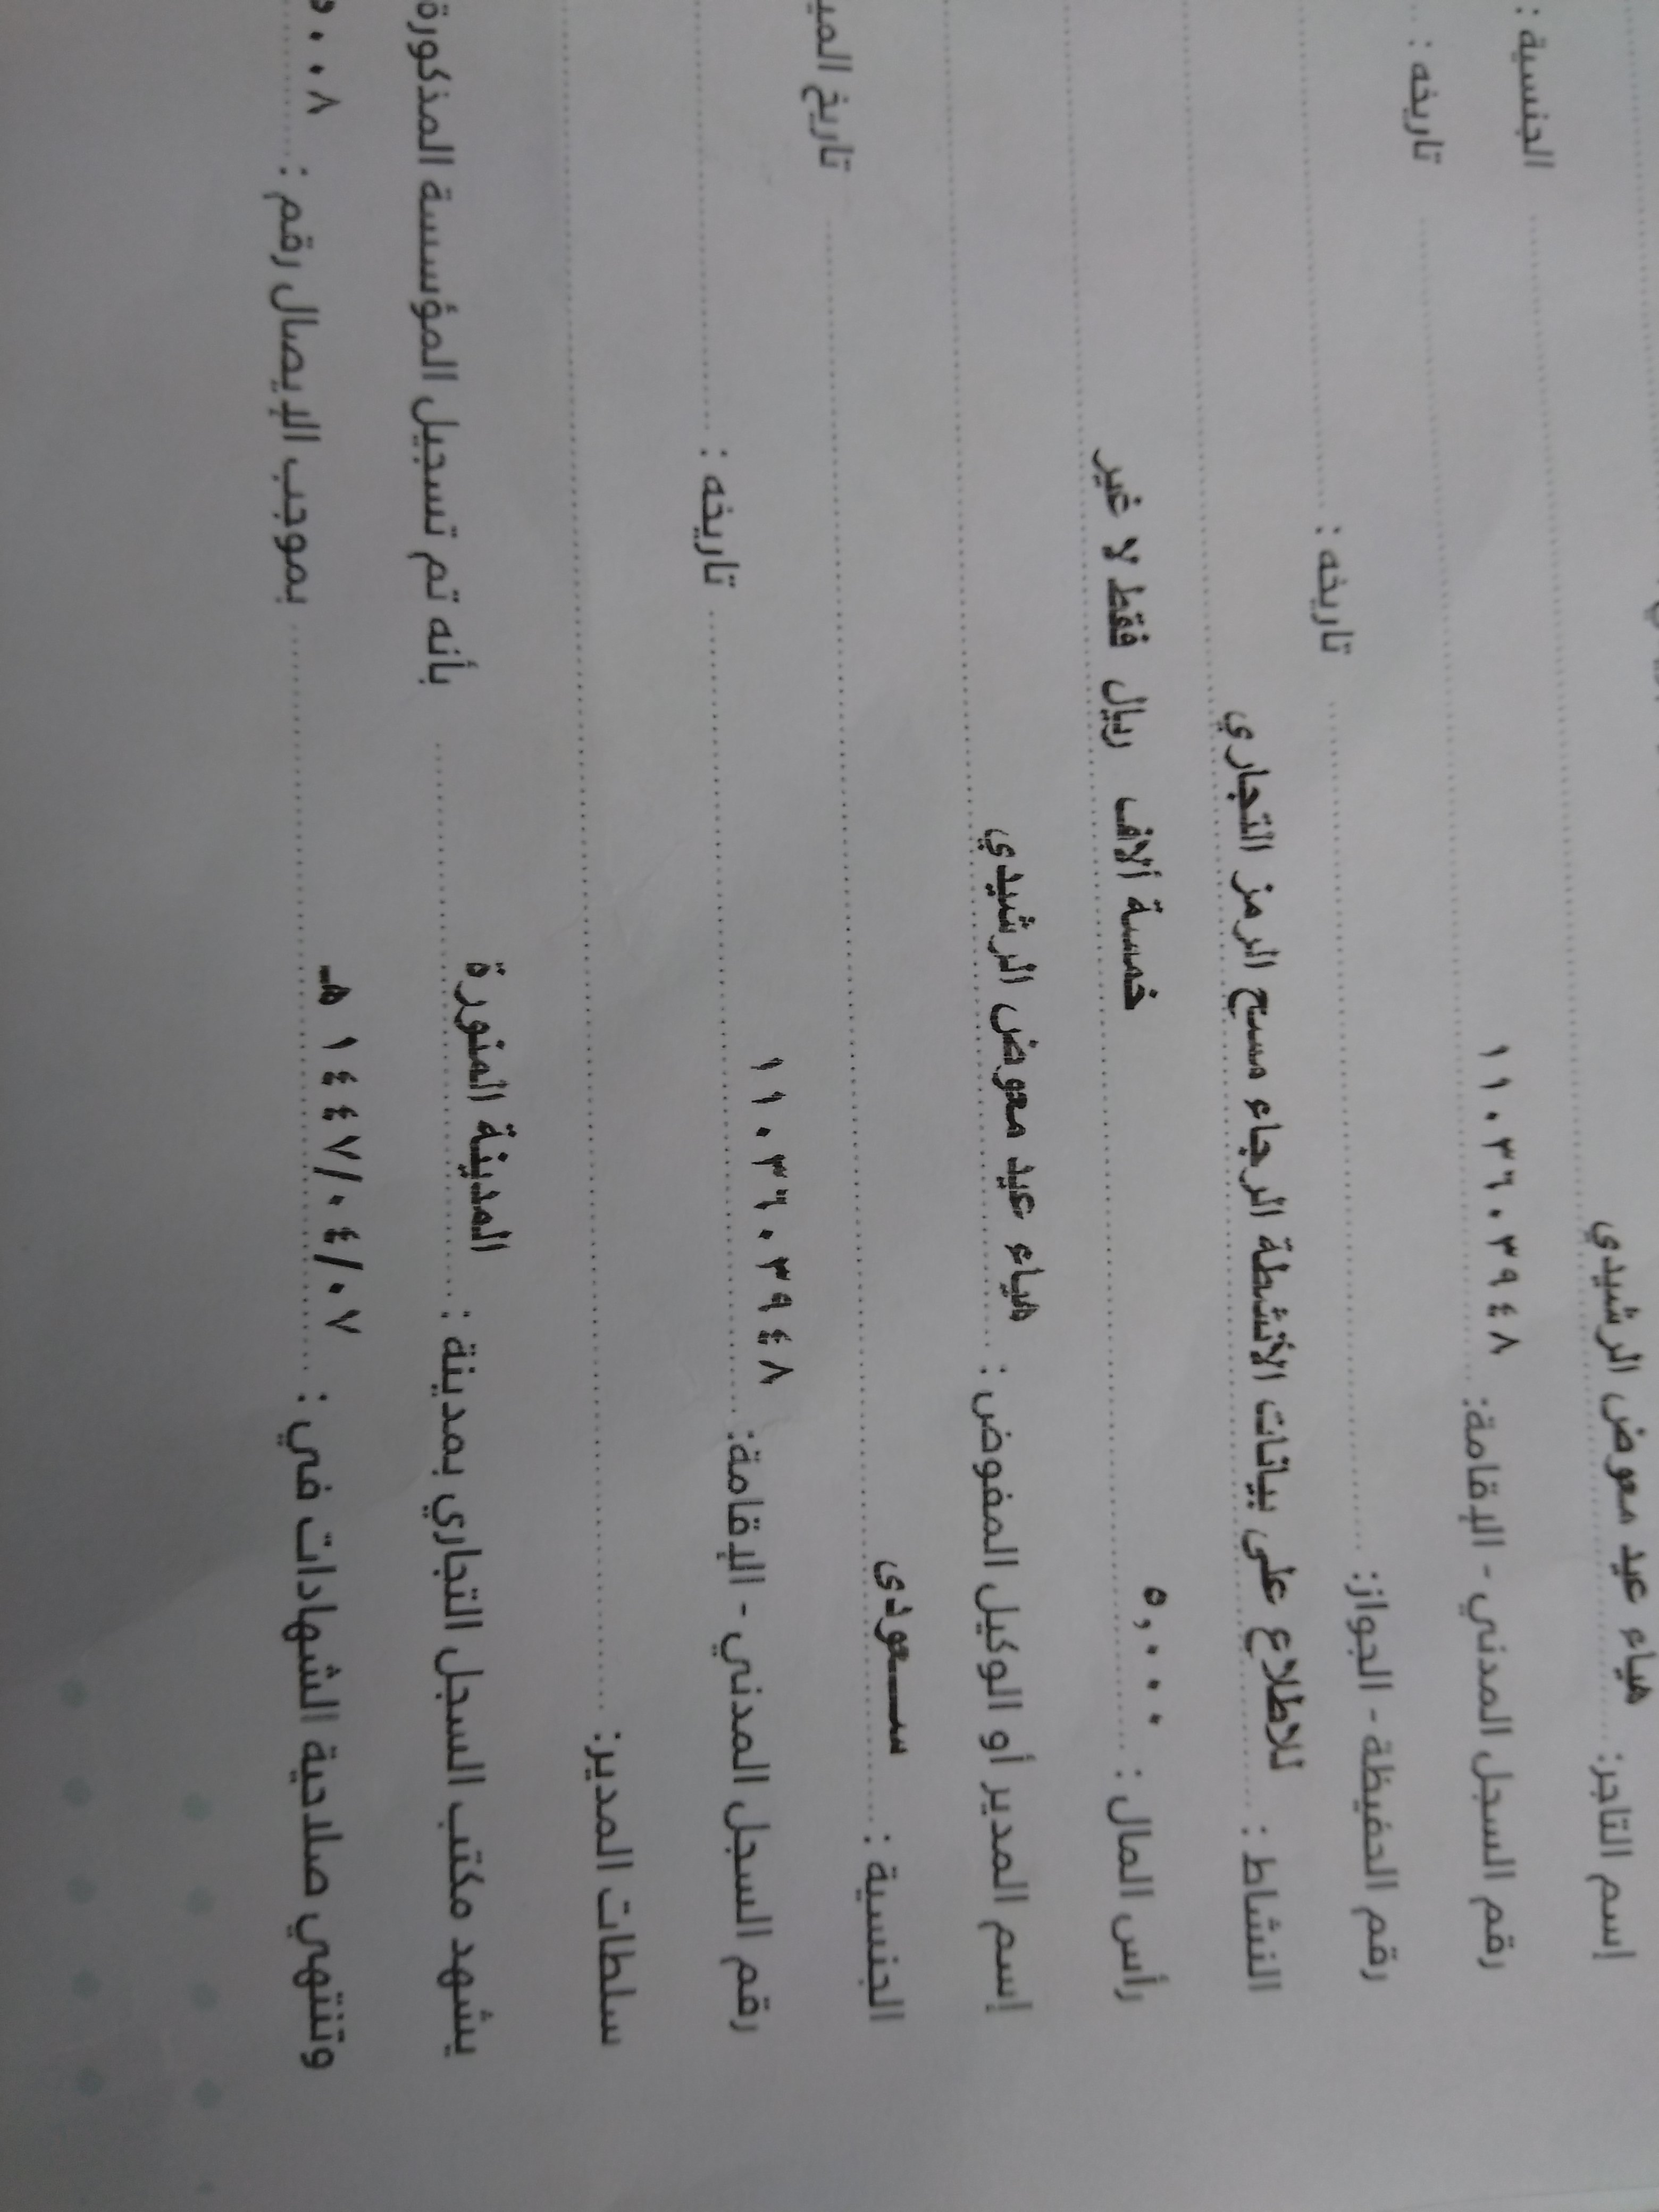 إسم التاجر: هياء عيد معوض الرشيدي الجنسية :
رقم السجل المدني - الإقامة: ١١٠٣٦٠٣٩٤٨ تاريخه :
رقم الحفيظة - الجواز: تاريخه :
النشاط : للاطلاع على بيانات الأنشطة الرجاء مسح الرمز التجاري
رأس المال : ٥,٠٠٠ خمسة ألاف ريال فقط لا غير
إسم المدير أو الوكيل المفوض : هياء عيد معوض الرشيدي
الجنسية : سعودى تاريخ
رقم السجل المدني - الإقامة: ١١٠٣٦٠٣٩٤٨ تاريخه :
سلطات المدير:
يشهد مكتب السجل التجاري بمدينة : المدينة المنورة بأنه تم تسجيل المؤسسة المذكورة
وتنتهي صلاحية الشهادات في : ١٤٤٧/٠٤/٠٧ هـ بموجب الإيصال رقم : ٨٠٠